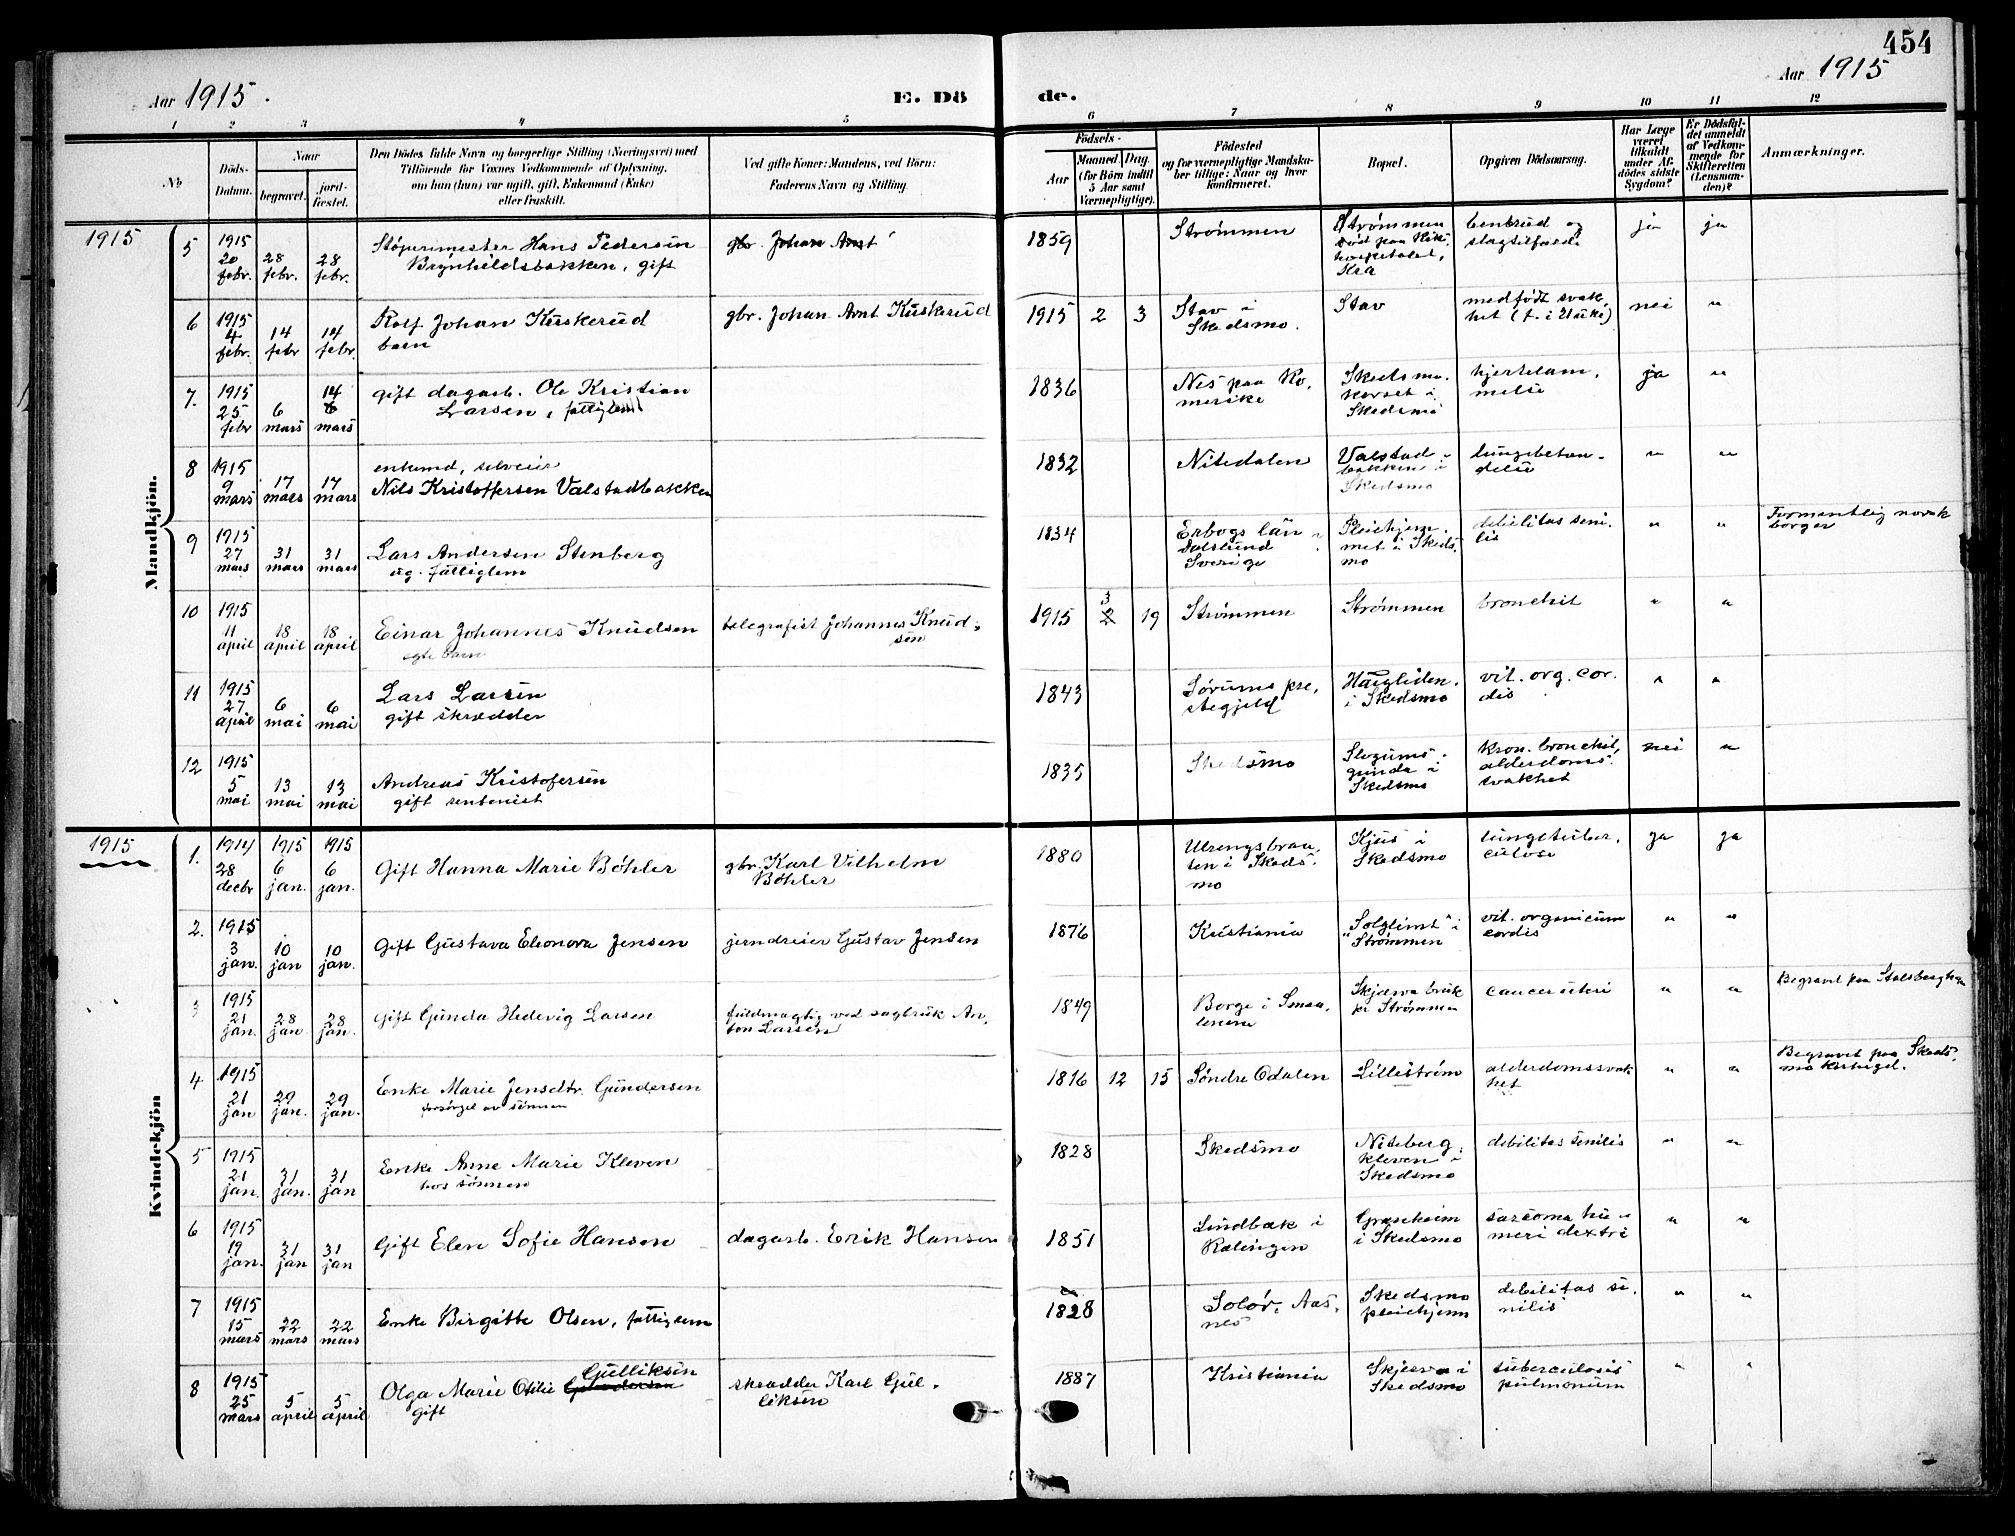 454
Aar 1915.
E. Dö
de.
Aar 1915
1 2 3 4 5 6 7 8 9 10 11 12
№
Döds-
Datum.
Naar
begravet.
jord-
fæstet.
Den Dödes fulde Navn og borgerlige Stilling (Næringsvei) med
Tilföiende for Voxnes Vedkommende af Oplysning,
om han (hun) var ugift, gift, Enkemand (Enke)
eller fraskilt.
Ved gifte Koner: Mandens, ved Börn:
Faderens Navn og Stilling.
Födsels-
Aar
Maaned
Dag.
(for Börn indtil
5 Aar samt
Værnepligtige).
Födested
og for værnepligtige Mandska-
ber tillige: Naar og hvor
konfirmeret.
Bopæl.
Opgiven Dödsaarsag.
Har Læge
været
tilkaldt
under Af-
dödes sidste
Sygdom?
Er Dödsfal-
det anmeldt
af Vedkom-
mende for
Skifteretten
(Lensman-
den)?
Anmærkninger.
Mandkjön.
1915
5
1915
20
febr.
28
febr.
28
febr.
Støperimester Hans Pedersen
Brynhildsbakken, gift
gbr. Johan Arnt
1859
Strømmen
Strømmen
død paa Riks-
hospitalet,
Kra
benbrud og
slagtilfælde
ja
ja
6
1915
4
febr.
14
febr
14
febr.
Rolf Johan Kuskerud
barn
gbr. Johan Arnt Kuskerud
1915 2 3
Stav i
Skedsmo.
Stav
medfødt svak-
het
nei
"
7.
1915
25
febr
6
mars
14
6
mars
gift dagarb. Ole Kristian
Larsen, fattiglem
1836
Nes paa Ro-
merike
Skedsmo-
korset i
Skedsmo
hjertelam-
melse
ja
"
8
1915
9
mars
17
mars
17
mars
enkemd, selveier
Nils Kristoffersen Valstadbakken
1832
Nitedalen
Valstad-
bakken i
Skedsmo
lungebetæn-
delse
"
"
9
1915
27
mars
31
mars
31
mars
Lars Andersen Stenberg
ug. fattiglem
1834
län
Dalslund
Sverige
Pleiehjem-
met i Skeds-
mo
debilitas seni-
lis
"
"
Formentlig norsk
borger
10
1915
11
april
18
april
18
april
Einar Johannes Knudsen
egte barn
telegrafist Johannes Knud-
sen
1915 3 2 19
Strømmen
Strømmen
bronchit
"
"
11
1915
27
april
6
mai
6
mai
Lars Larsen
gift skrædder
1843
Sørums pre-
stegjeld
Haugliden
i Skedsmo
vit. org. cor-
dis
"
"
12
1915
5
mai
13
mai
13
mai
Andreas Kristofersen
gift
1835
Skedsmo
i
Skedsmo
kron. bronchit,
alderdoms-
svakhet
nei
"
Kvindekjön
1915
1.
1914
28
decbr
1915
6
jan.
1915
6
jan.
Gift Hanna Marie Böhler
gbr. Karl Vilhelm
Böhler
1880
ten i Skeds-
mo
Kjus i
Skedsmo
lungetuber-
culose
ja
ja
2.
1915
3
jan.
10
jan
10
jan.
Gift Gustava Eleonora Jensen
jerndreier Gustav Jensen
1876
Kristiania
"Solglimt" i
Strømmen
vit. organicum
cordis
"
"
3
1915
21
jan.
28
jan.
28
jan.
Gift Gunda Hedevig Larsen
fuldmægtig ved sagbruk An-
ton Larsen
1849
Borge i Smaa-
lenene
Skjærva bruk
pr Strømmen
cancer uteri
"
"
Begravet paa Stalsberghagen
4
1915
21
jan
29
jan.
29
jan.
Enke Marie Jensdtr. Gundersen
forsørget av sønnen
1816 12 15
Söndre Odalen
Lilleström
alderdomssvak-
het
"
"
Begravet paa Skeds-
mo kirkegd.
5
1915
21
jan.
31
jan.
31
jan
Enke Anne Marie Kleven
hos sönnen
1828
Skedsmo
Niteberg-
kleven i
Skedsmo
debilitas senilis
"
"
6
1915
19
jan.
31
jan
31
jan
Gift Elen Sofie Hansen
dagarb. Erik Hansen
1851
Lundbæk i
Rælingen
Granheim
i Skedsmo
sarcoma hu-
meri dextri
"
"
7
1915
15
mars
22
mars
22
mars
Enke Birgitte Olsen, fattiglem
1828
Solör, Aas-
nes
Skedsmo
pleiehjem
debilitas se-
nilis
"
"
8
1915
25
mars
5
april
5
april
Olga Marie Otilie Gundersen Gulliksen
gift
skrædder Karl Gul-
liksen
1887
Kristiania
Skjærva i
Skedsmo
tuberculosis
pulmonum
"
"